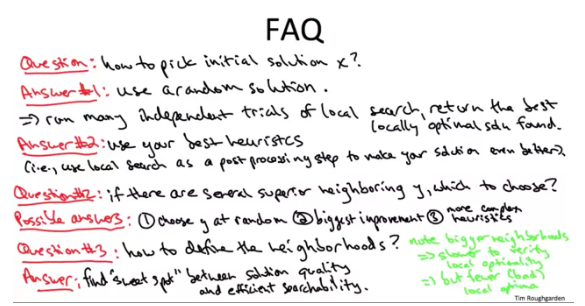 FAQ
Question: how to pick initial solution x?
Answer #1: use a random solution.
⇒ run many independent trials of local search, return the best
locally optimal soln found.
Answer #2: use your best heuristics
(i.e., use local search as a post processing step to make your solution even better).
Question #2: if there are several superior neighboring y, which to choose?
Possible answers: ① choose y at random ② biggest improvement ③ more complex
heuristics
Question #3: how to define the neighborhoods?
Answer: find "sweet spot" between solution quality
and efficient searchability.
note bigger neighborhoods
⇒ slower to verify
local optimality
⇒ but fewer (bad)
local optima
Tim Roughgarden